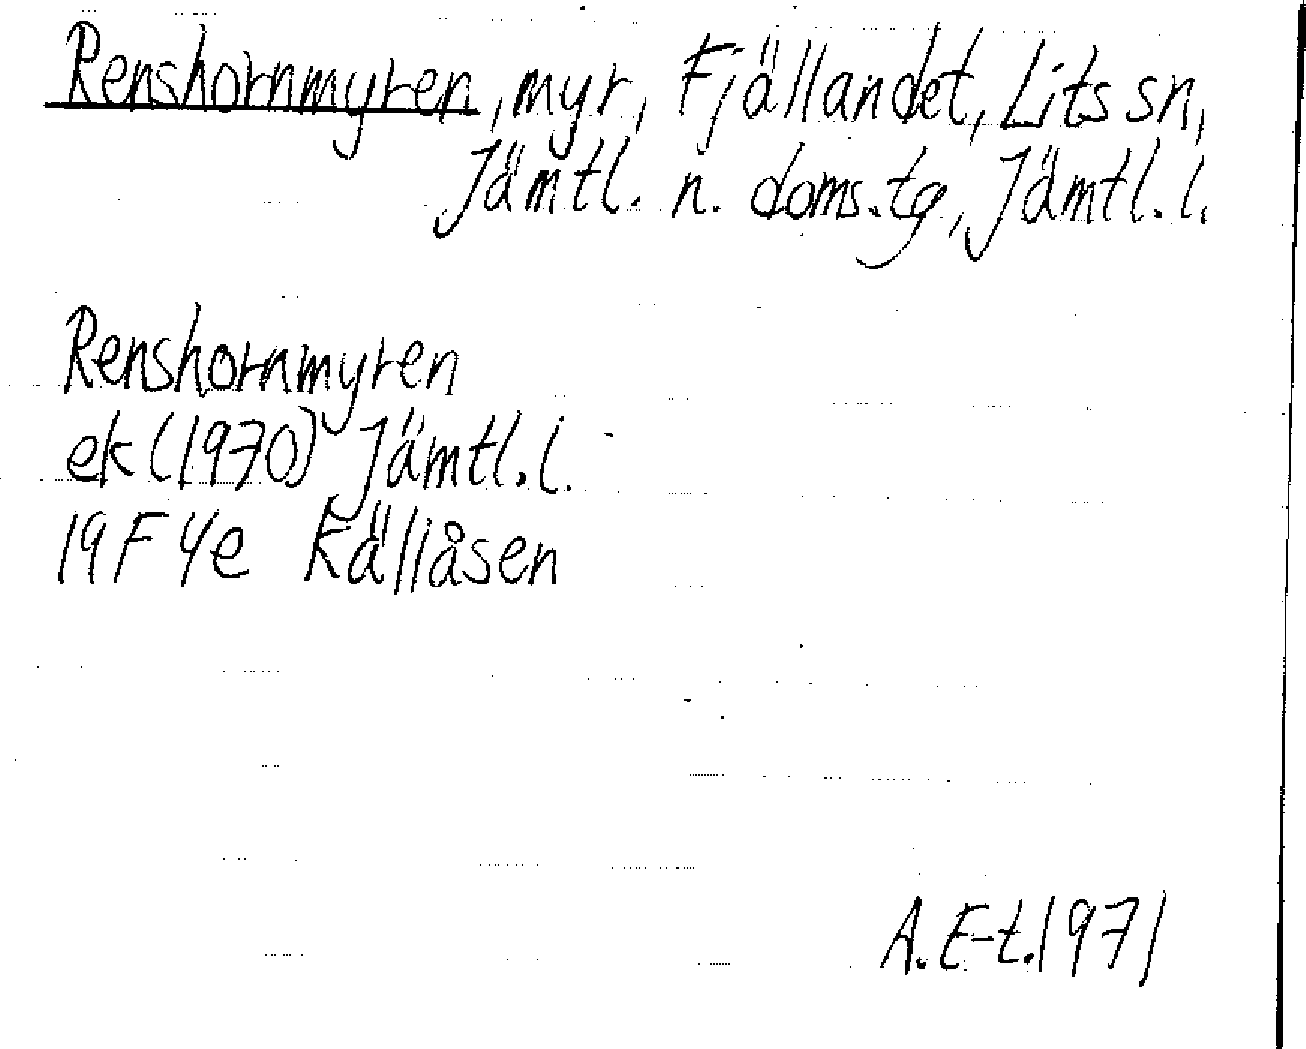 Renshornmyren, myr, Fjällandet, Lits sn,
Jämtl. n. doms.tg, Jämtl. l.
Renshornmyren
ek (1970) Jämtl. l.
19F 4e Källåsen
A. E-t. 1971